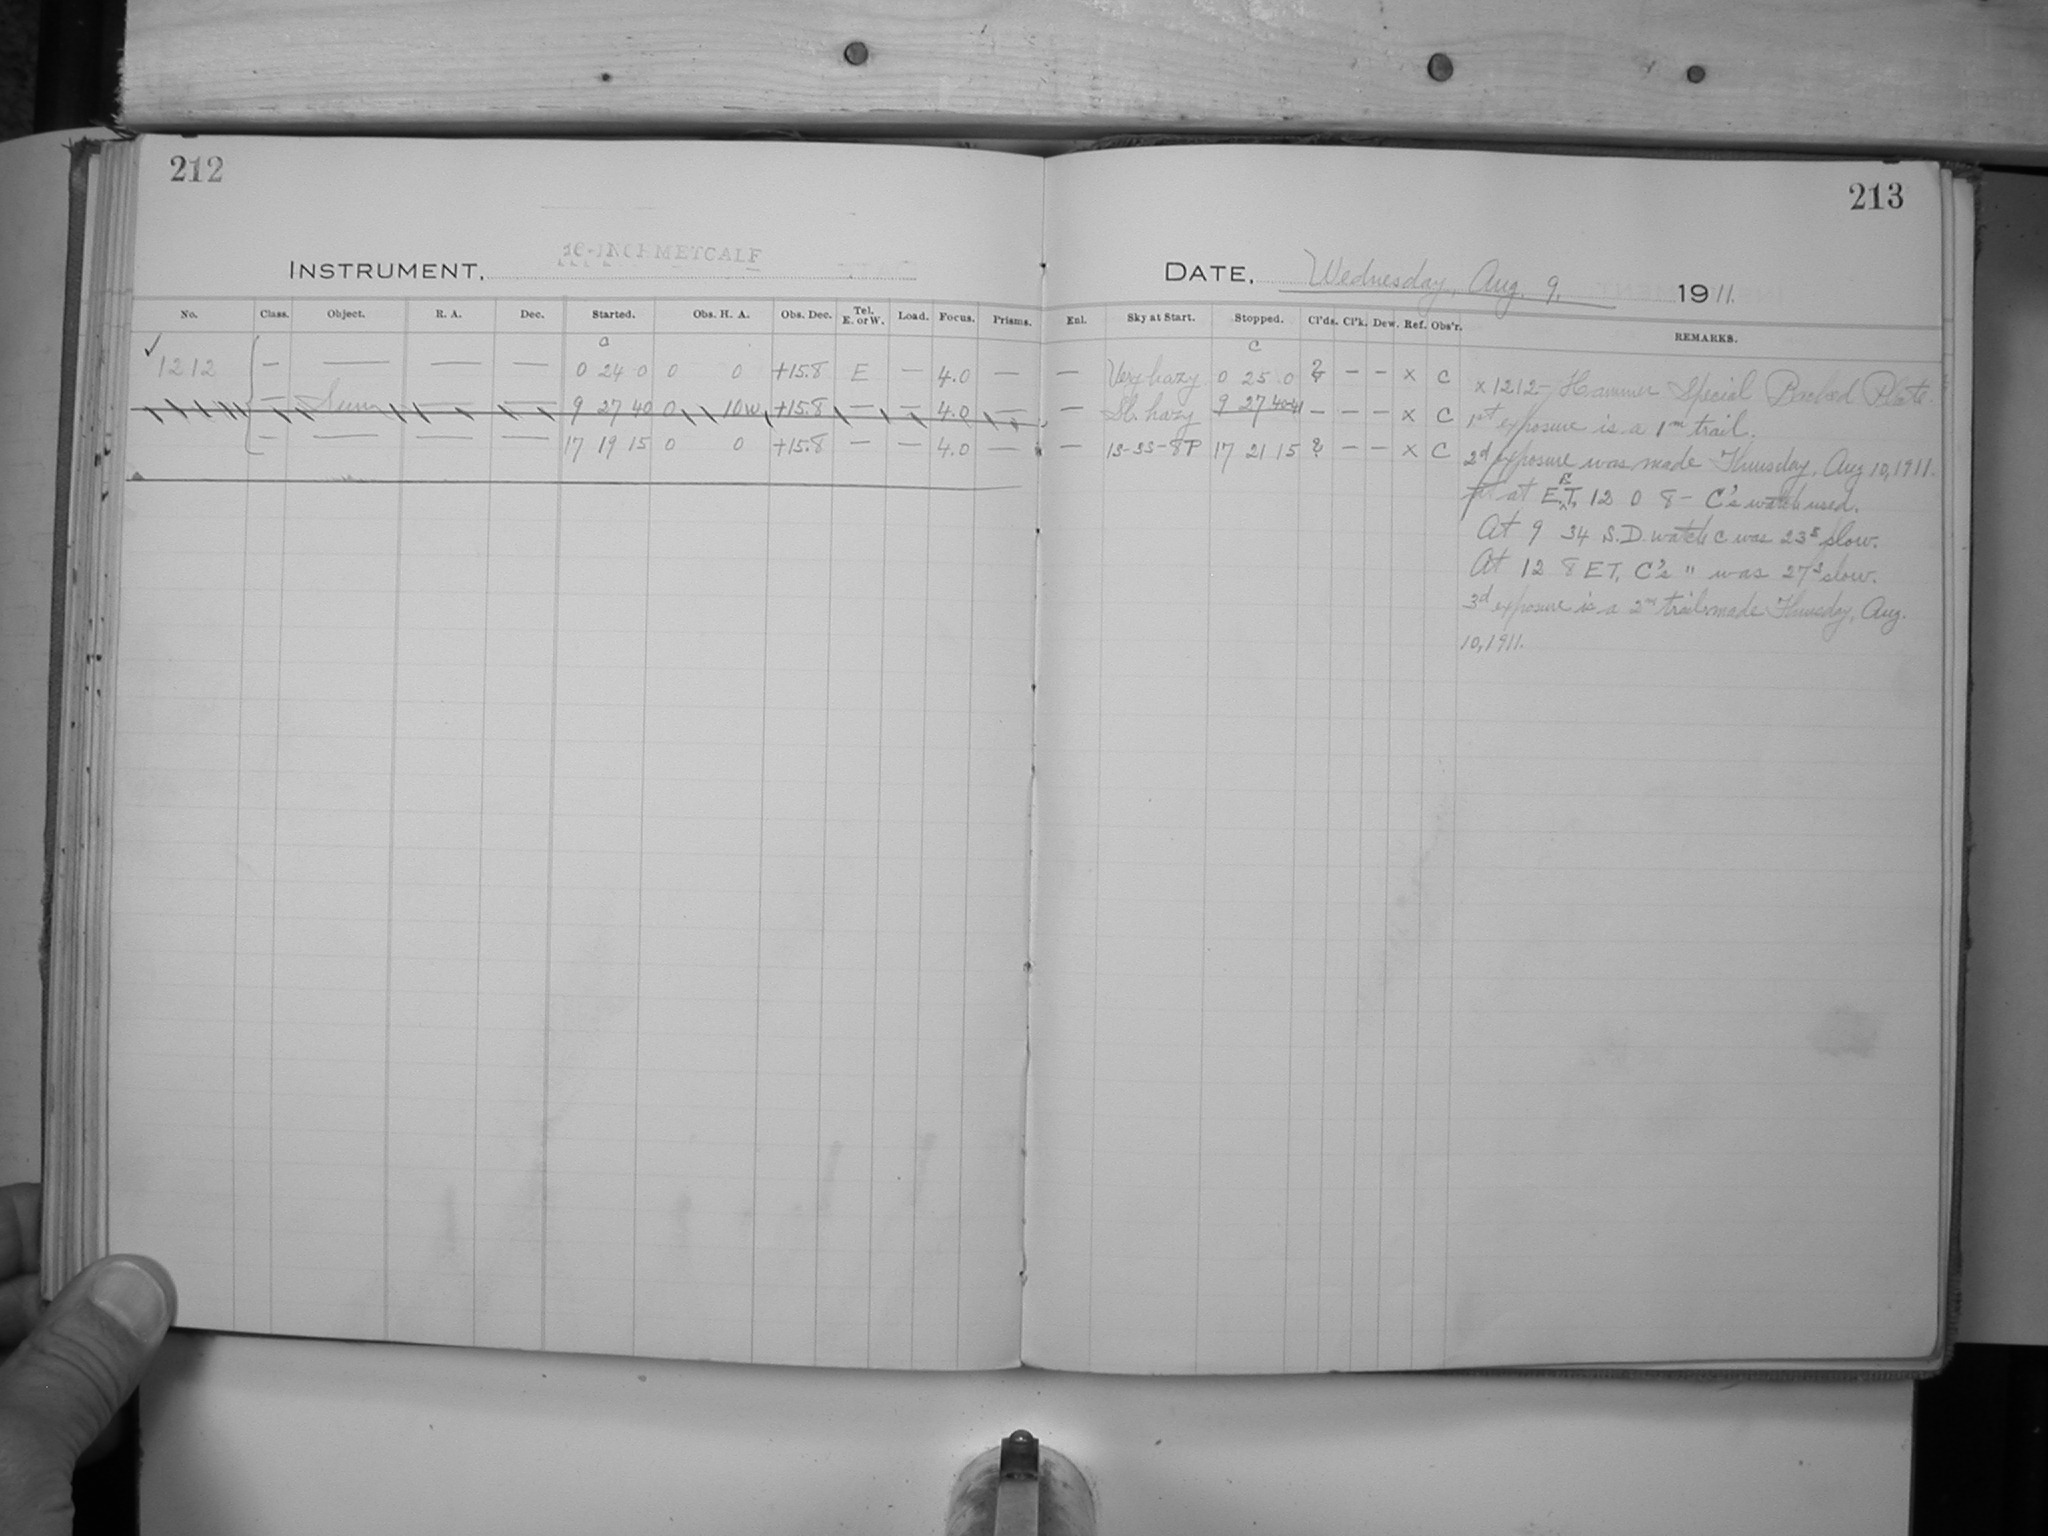 212
213
INSTRUMENT, 16-INCH METCALF
DATE, Wednesday, Aug. 9, 1911.
No. Class. Object. R. A. Dec. Started. Obs. H. A. Obs. Dec. Tel. E. or W. Load. Focus. Prisms. Enl. Sky at Start. Stopped. Cl'ds. Cl'k. Dew. Ref. Obs'r. REMARKS.
C C
✓ 1212 — — — — 0 24 0 0 0 +15.8 E — 4.0 — — Very hazy 0 25 0 2 — — x C
— Sun — — 9 27 40 0 10W +15.8 — — 4.0 — — Sl. hazy 9 27 40-41 — — — x C
— — — — 17 19 15 0 0 +15.8 — — 4.0 — — 13-33-8P 17 21 15 2 — — x C
x 1212 - Hammer Special Backed Plate.
1st exposure is a 1m trail.
2d exposure was made Thursday, Aug 10, 1911.
at E.T. 12 0 8 - C's watch used.
At 9 34 S.D. watch C was 23s slow.
At 12 8 ET, C's " was 27s slow.
3d exposure is a 2m trail made Thursday, Aug.
10, 1911.